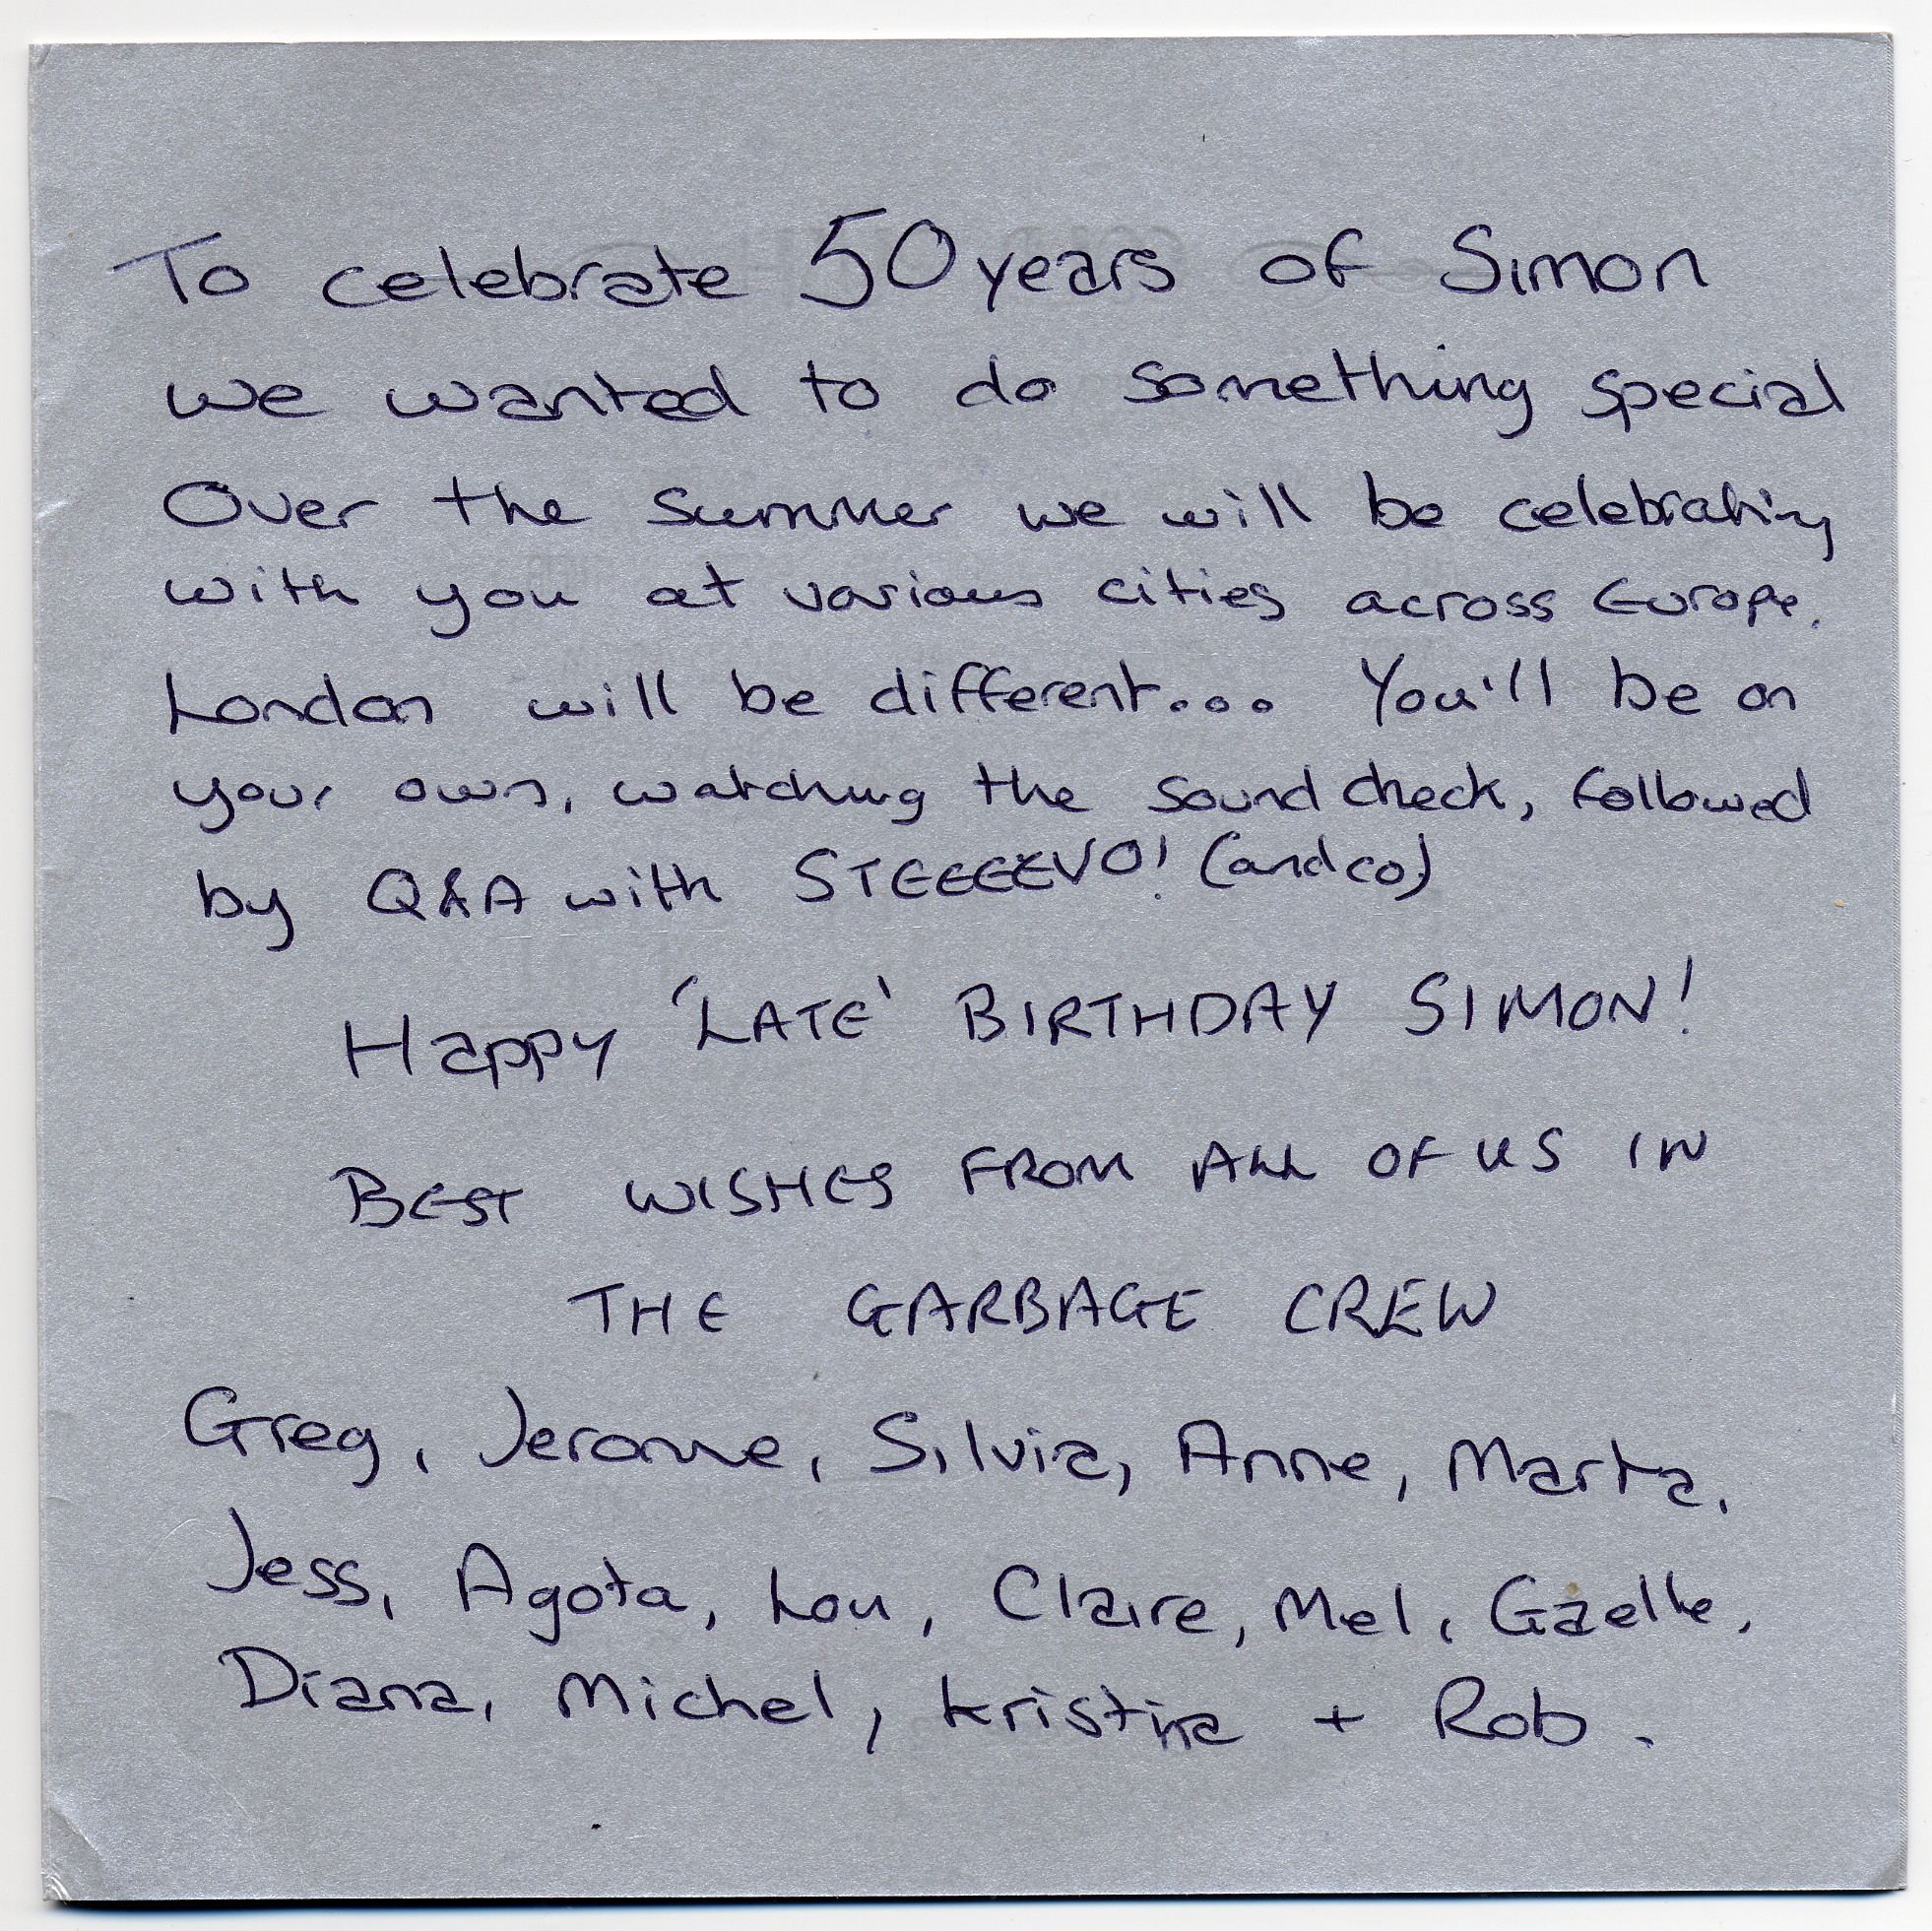 To celebrate 50 years of Simon
we wanted to do something special
Over the summer we will be celebrating
with you at various cities across Europe.
London will be different... You'll be on
your own, watching the sound check, followed
by Q&A with STEEEEVO! (and co)
Happy 'LATE' BIRTHDAY SIMON!
BEST WISHES FROM ALL OF US IN
THE GARBAGE CREW
Greg, Jerome, Silvia, Anne, Marta,
Jess, Agota, Lou, Claire, Mel, Gaelle,
Diana, Michel, Kristina + Rob.